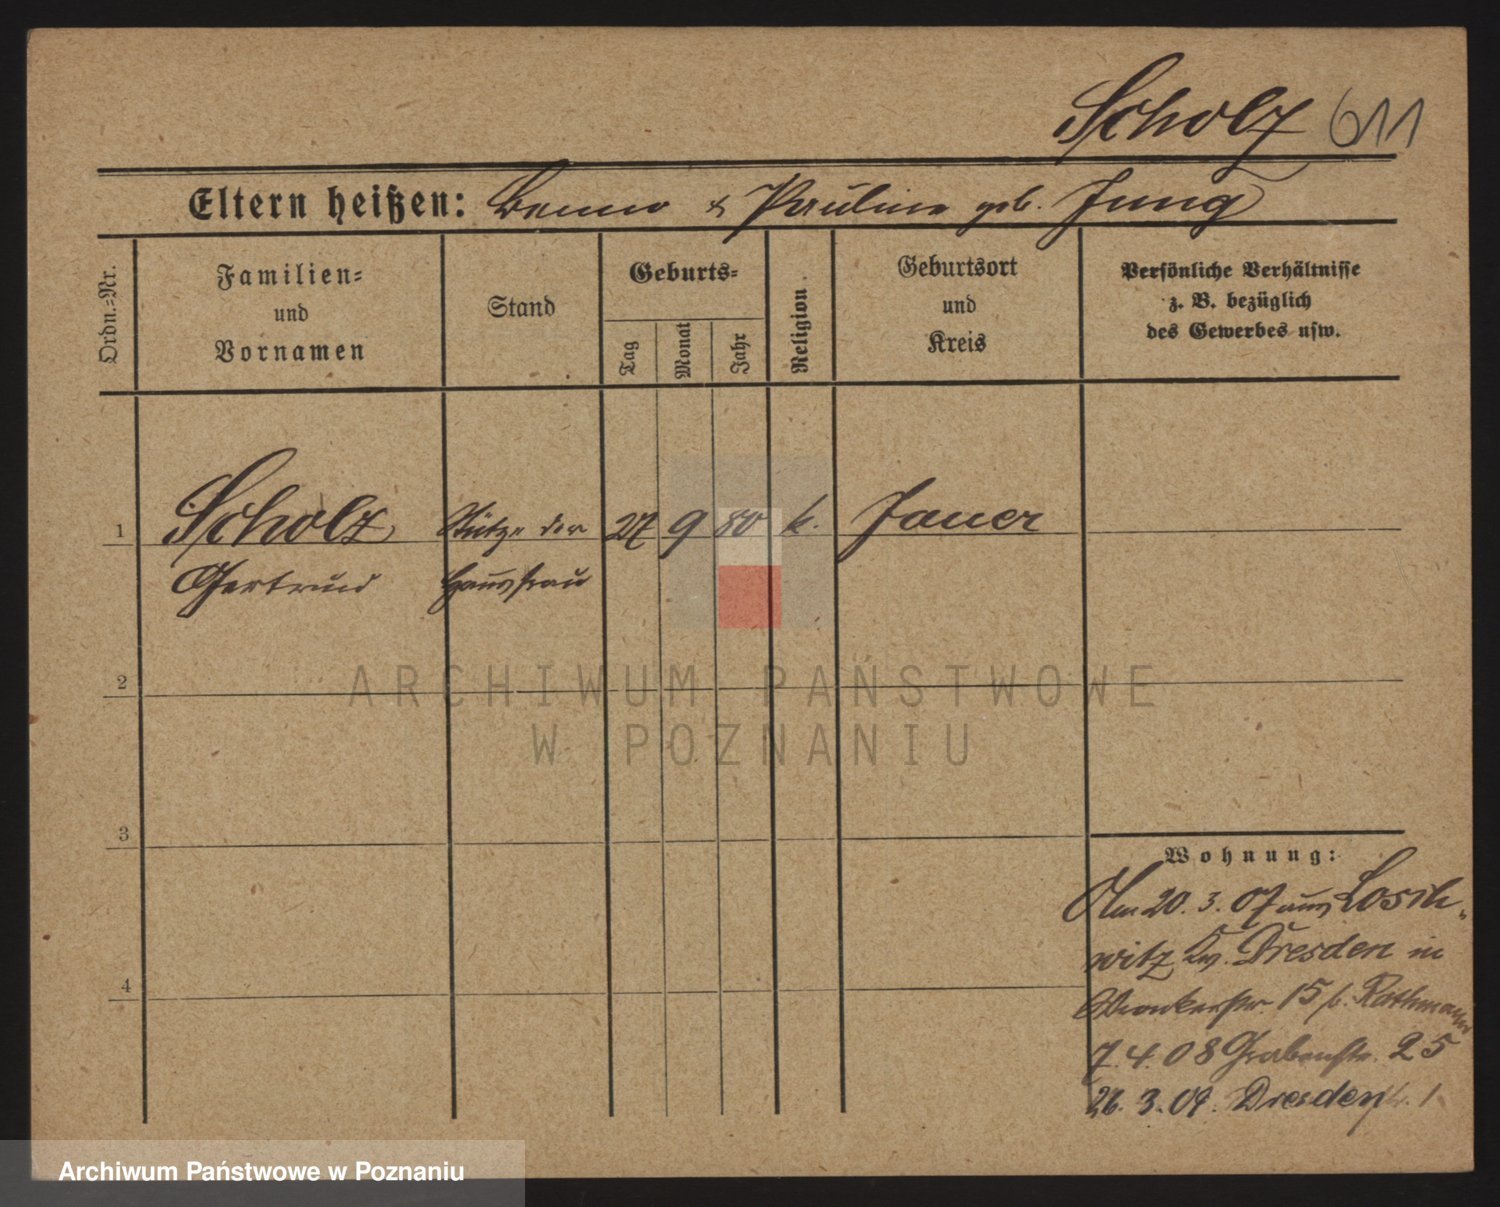 Scholz 611
Eltern heißen: Benno & Pauline geb. Jung
Ordn.-Nr.
Familien- und Vornamen
Stand
Geburts-
Tag
Monat
Jahr
Religion
Geburtsort und Kreis
Persönliche Verhältnisse
z. B. bezüglich
des Gewerbes usw.
1 Scholz Stütze der 27 9 80 k. Jauer
Gertrud Hausfrau
2
3
4
Wohnung:
Am 20. 3. 07 aus Losch-
witz Dresden in
Wronkerstr. 15 b. Rothmann
7. 4. 08 Grabenstr. 25
26. 3. 09. Dresden
ARCHIWUM PAŃSTWOWE
W POZNANIU
Archiwum Państwowe w Poznaniu